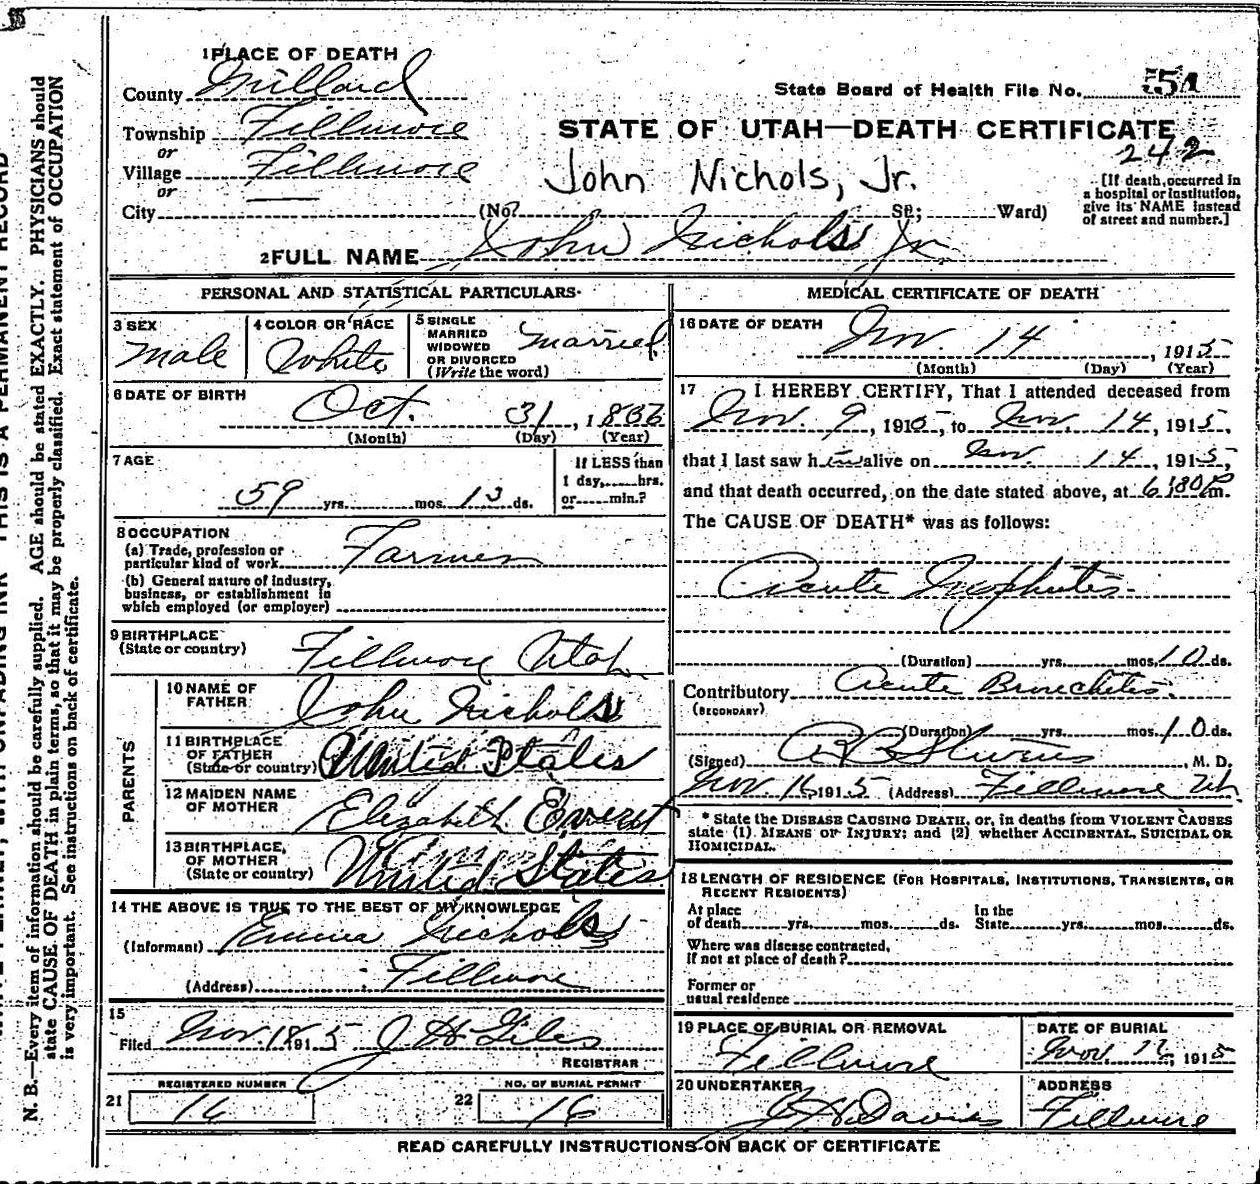 1 PLACE OF DEATH
County Millard
State Board of Health File No. 54
Township Fillmore
or
STATE OF UTAH—DEATH CERTIFICATE
242
Village Fillmore
or
John Nichols, Jr.
[If death occurred in a hospital or institution, give its NAME instead of street and number.]
City (No. St; Ward)
2 FULL NAME John Nichols Jr
PERSONAL AND STATISTICAL PARTICULARS
3 SEX Male
4 COLOR OR RACE White
5 SINGLE MARRIED WIDOWED OR DIVORCED (Write the word) Married
6 DATE OF BIRTH Oct. 31, 1856
(Month) (Day) (Year)
7 AGE
59 yrs. mos. 13 ds.
If LESS than 1 day, hrs. or min.?
8 OCCUPATION
(a) Trade, profession or particular kind of work Farmer
(b) General nature of industry, business, or establishment in which employed (or employer)
9 BIRTHPLACE (State or country) Fillmore Utah
PARENTS
10 NAME OF FATHER John Nichols
11 BIRTHPLACE OF FATHER (State or country) United States
12 MAIDEN NAME OF MOTHER Elizabeth
13 BIRTHPLACE OF MOTHER (State or country) United States
14 THE ABOVE IS TRUE TO THE BEST OF MY KNOWLEDGE
(Informant) Emma Nichols
(Address) Fillmore
15
Filed Nov. 18 1915 J H Giles
REGISTRAR
REGISTERED NUMBER
21 16
NO. OF BURIAL PERMIT
22 16
MEDICAL CERTIFICATE OF DEATH
16 DATE OF DEATH Nov. 14, 1915
(Month) (Day) (Year)
17 I HEREBY CERTIFY, That I attended deceased from
Nov. 9, 1915, to Nov. 14, 1915,
that I last saw him alive on Nov. 14, 1915,
and that death occurred, on the date stated above, at 6:30 P m.
The CAUSE OF DEATH* was as follows:
Acute Nephritis.
(Duration) yrs. mos. 10 ds.
Contributory Acute Bronchitis.
(SECONDARY)
(Duration) yrs. mos. 10 ds.
(Signed) Stevens, M. D.
Nov. 16 1915 (Address) Fillmore Ut.
* State the DISEASE CAUSING DEATH, or, in deaths from VIOLENT CAUSES
state (1) MEANS OF INJURY; and (2) whether ACCIDENTAL, SUICIDAL OR
HOMICIDAL.
18 LENGTH OF RESIDENCE (FOR HOSPITALS, INSTITUTIONS, TRANSIENTS, OR
RECENT RESIDENTS)
At place of death yrs. mos. ds. In the State yrs. mos. ds.
Where was disease contracted,
If not at place of death?
Former or
usual residence
19 PLACE OF BURIAL OR REMOVAL Fillmore
DATE OF BURIAL Nov. 1915
20 UNDERTAKER Davies
ADDRESS Fillmore
READ CAREFULLY INSTRUCTIONS ON BACK OF CERTIFICATE
THIS IS A PERMANENT RECORD
N. B.—Every item of information should be carefully supplied. AGE should be stated EXACTLY. PHYSICIANS should
state CAUSE OF DEATH in plain terms, so that it may be properly classified. Exact statement of OCCUPATION
is very important. See instructions on back of certificate.